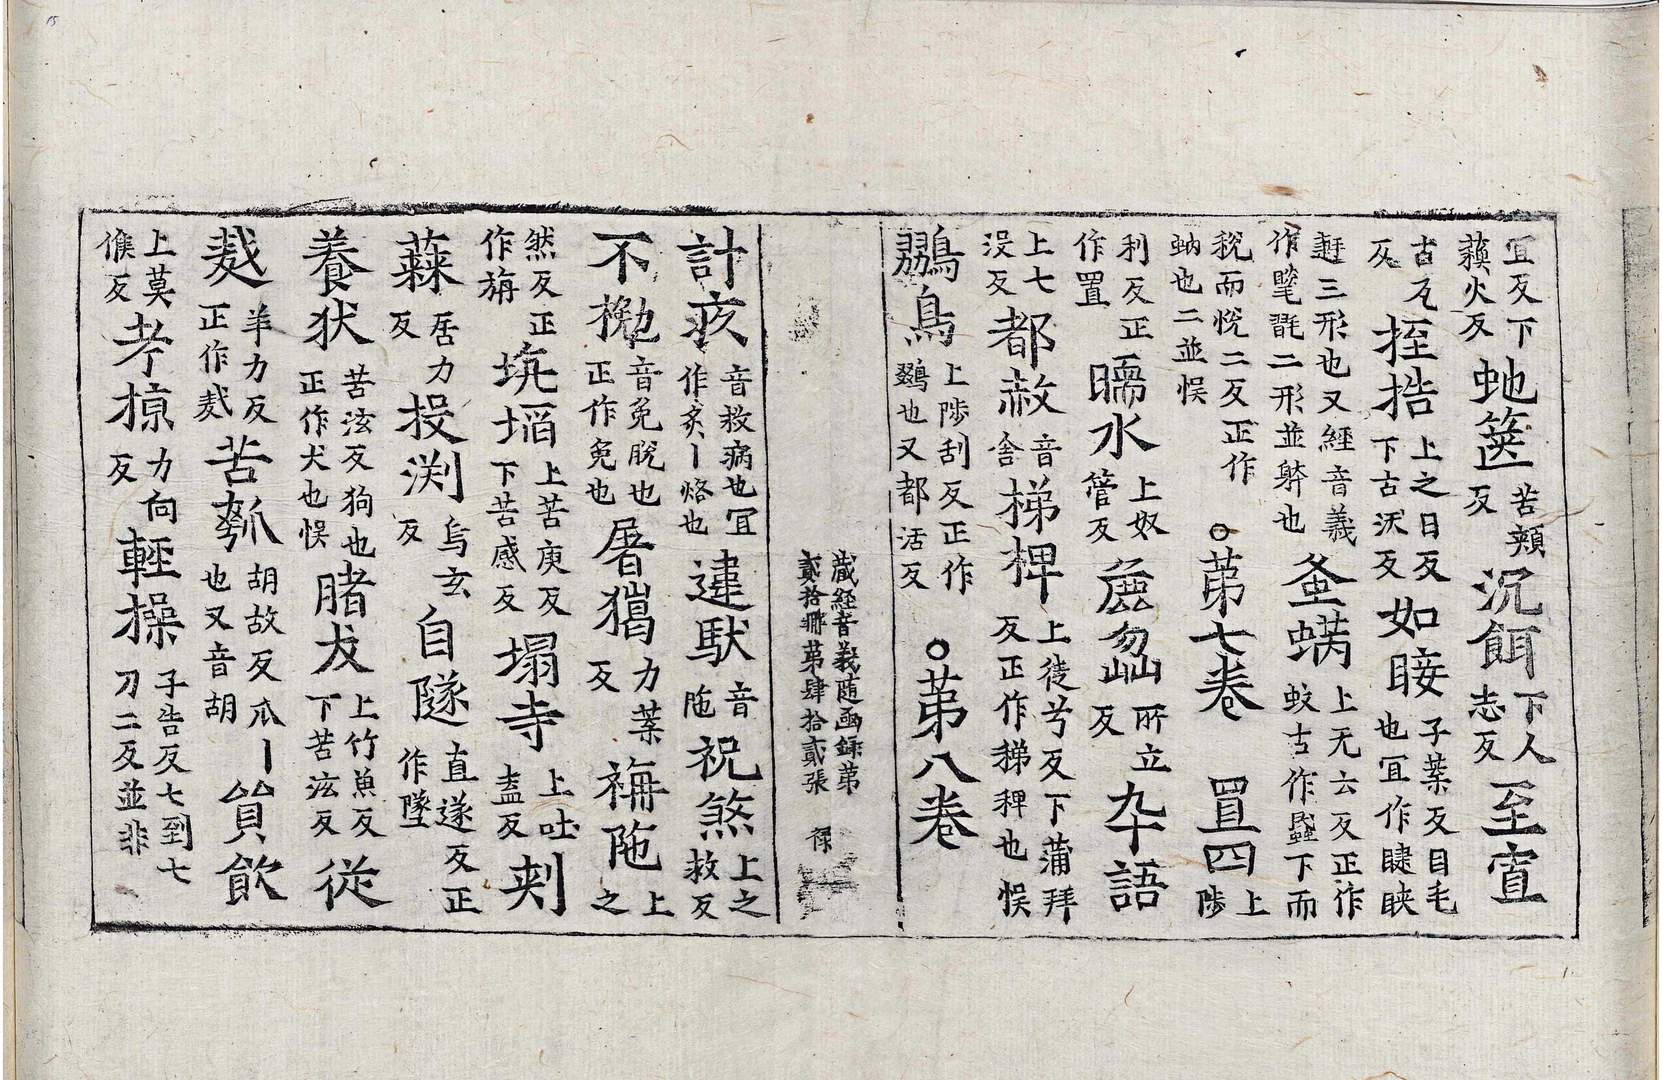 冝反下蘋火反虵篋苦頰反沉餌下人志反至宣
古瓦反挃捁上之日反下古沃反如䀹子葉反目毛也冝作睫䀹
䟽三形也又經音義作氀毾二形並躲也蚤螨上无六反正作蚊古作蟁下而
稅而悅二反正作蚋也二並悮○第七卷 罝四上陟
利反正作置曘水上奴管反麁㔃所立反夲語
上七沒反都赦音舍梯椑上徒兮反下蒲拜反正作稊稗也悮
鸐鳥上陟刮反正作鵽也又都活反○第八卷
藏經音義随函録第貳拾冊第肆拾貳張 禄
計疚音救病也冝作灸丨烙也建馱音陁祝煞上之救反
不㧕音免脫也正作免也屠獦力葉反䄠陁上之
然反正作旃坑埳上苦庚反下苦感反塌寺上吐盍反刾
蕀居力反投渕烏玄反自隊直遂反正作墜
養犾苦泫反狗也正作犬也悮䐗犮上竹魚反下苦泫反從
䴬羊力反正作麩苦瓠胡故反瓜丨也又音胡貟飲
上莫候反考掠力向反輕操子告反七到七刀二反並非